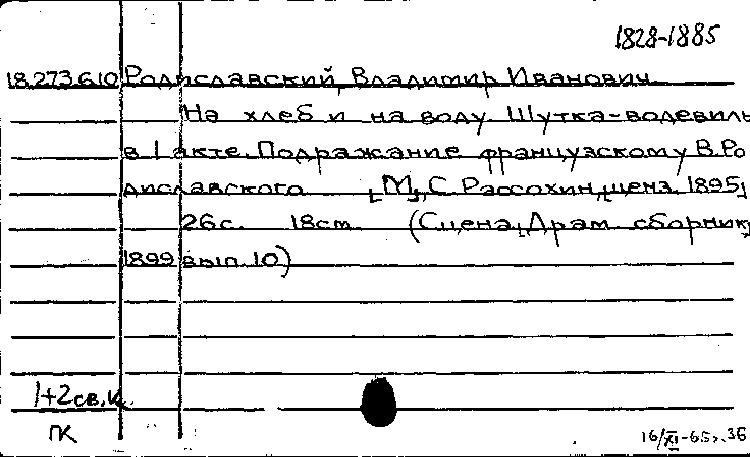 1828-1885
18.273.610 Родиславский, Владимир Иванович
На хлеб и на воду. Шутка-водевиль
в 1 акте. Подражание французскому В. Ро
диславского [М., С. Рассохин, ценз. 1895]
26 с. 18 cm. (Сцена. Драм. сборник,
1899 вып. 10)
1+2 св. к.
ПК
16/XI-65г. 36